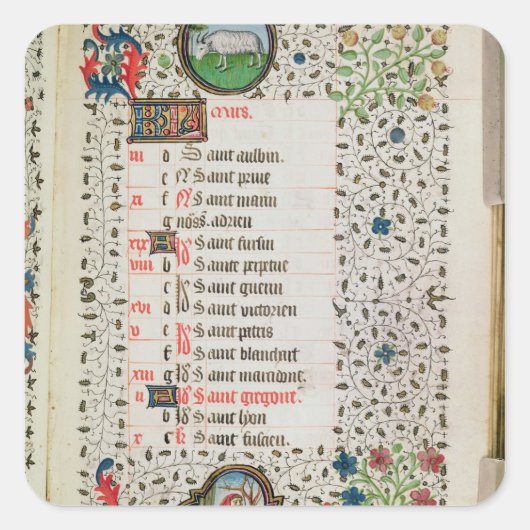 KL Mars.
iii d Saint aulbin.
e N Saint priue
xi f N Saint marin
g Nōss. adrien.
xix A Saint fursin
viii b Sainte perpetue
c Saint guerin
xvi d Saint victorien
v e Saint patris
f Saint blanchart
xiii g Saint maradone.
ii A Saint gregoire.
b Saint lyon
x c k Saint fuscien.